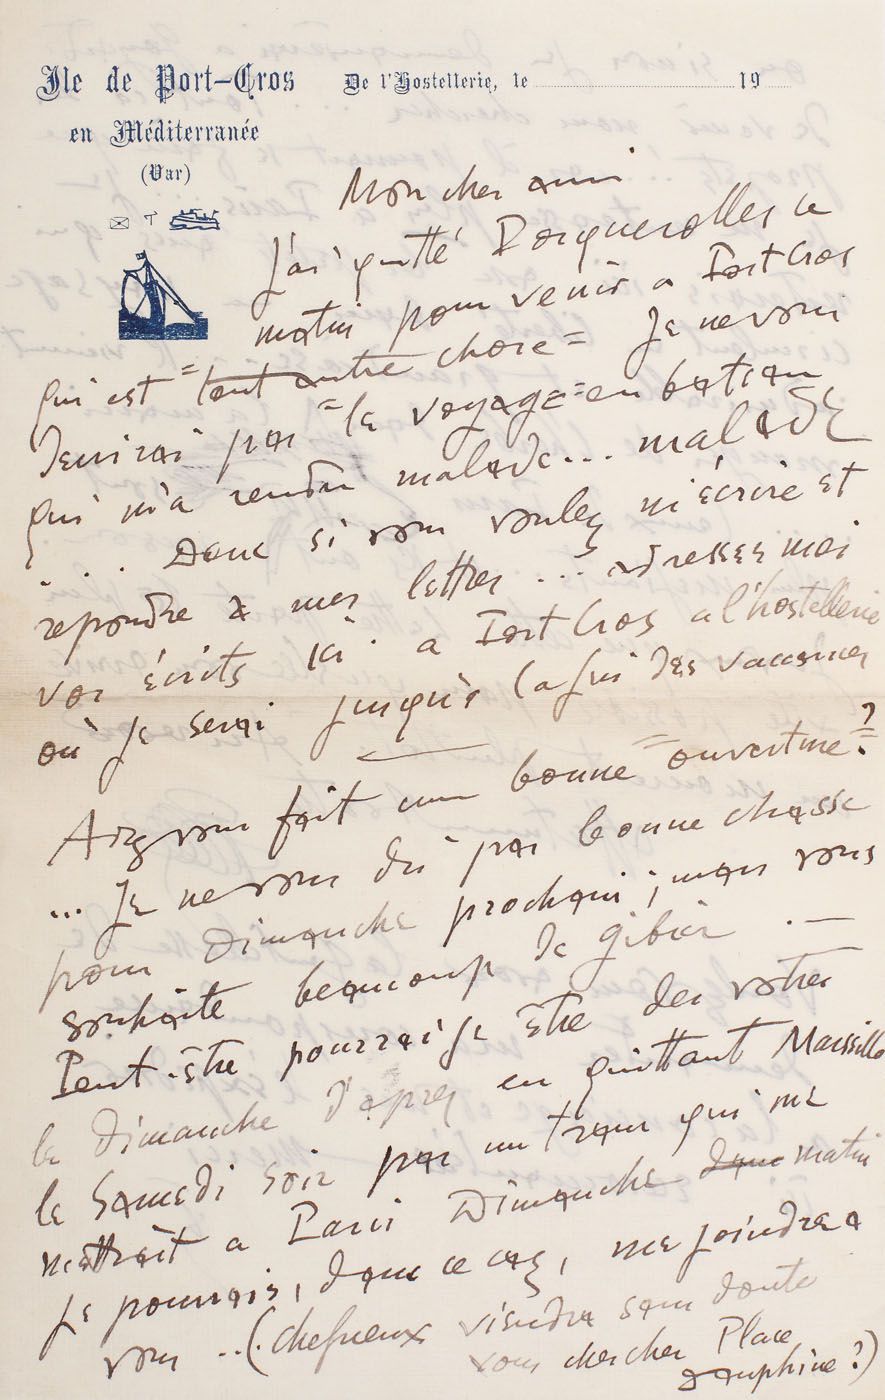 Ile de Port-Cros
De l'Hostellerie, le 19
en Méditerranée
(Var)
Mon cher ami
J'ai quitté Porquerolles ce
matin pour venir a Port Cros
qui est "tout autre chose" Je ne vous
decrirai pas "le voyage" en bateau
qui m'a rendu malade... malade
... Donc si vous voulez m'écrire et
repondre a mes lettres ... adressez moi
vos écrits ici. a Port Cros a l'hostellerie
où je serai jusqu'à la fin des vacances
Avez vous fait une bonne "ouverture"?
... Je ne vous dis pas bonne chasse
pour Dimanche prochain ; mais vous
souhaite beaucoup de gibier . —
Peut-être pourrai je être des votres
le Dimanche d'apres en quittant Marseille
le Samedi soir par un train qui me
mettrait a Paris Dimanche matin
je pourrais, dans ce cas, me joindre a
vous ..(chefneux viendra sans doute
vous chercher Place
Dauphine ?)